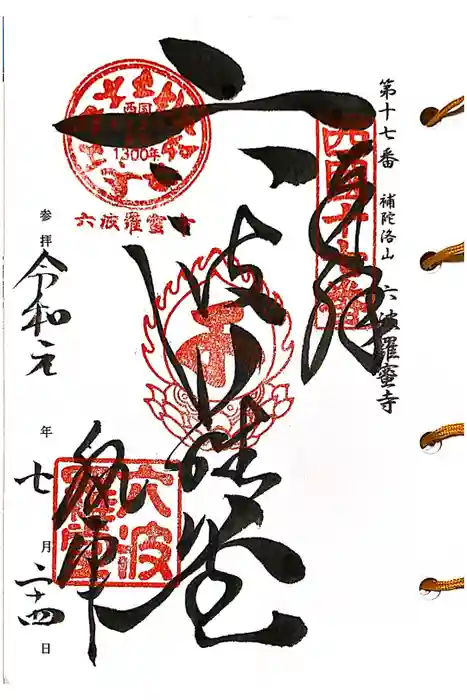 第十七番 補陀洛山 六波羅蜜寺
奉拝
西国十七番
六波羅蜜堂
西国
1300年
六波羅蜜寺
六波
羅蜜
参拝 令和元年 七月 二十四日